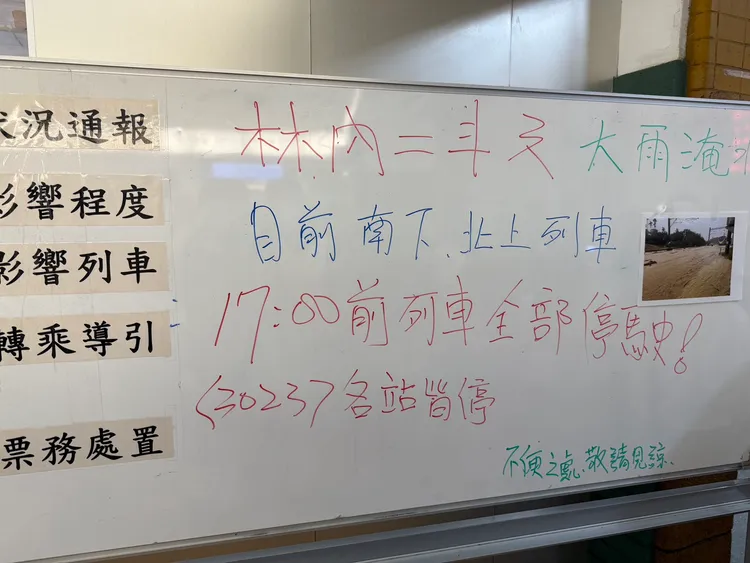 狀況通報
林內=斗六 大雨淹水
影響程度
目前南下、北上列車
影響列車
17:00前列車全部停駛!
轉乘導引
(3023)各站皆停
票務處置
不便之處、敬請見諒.